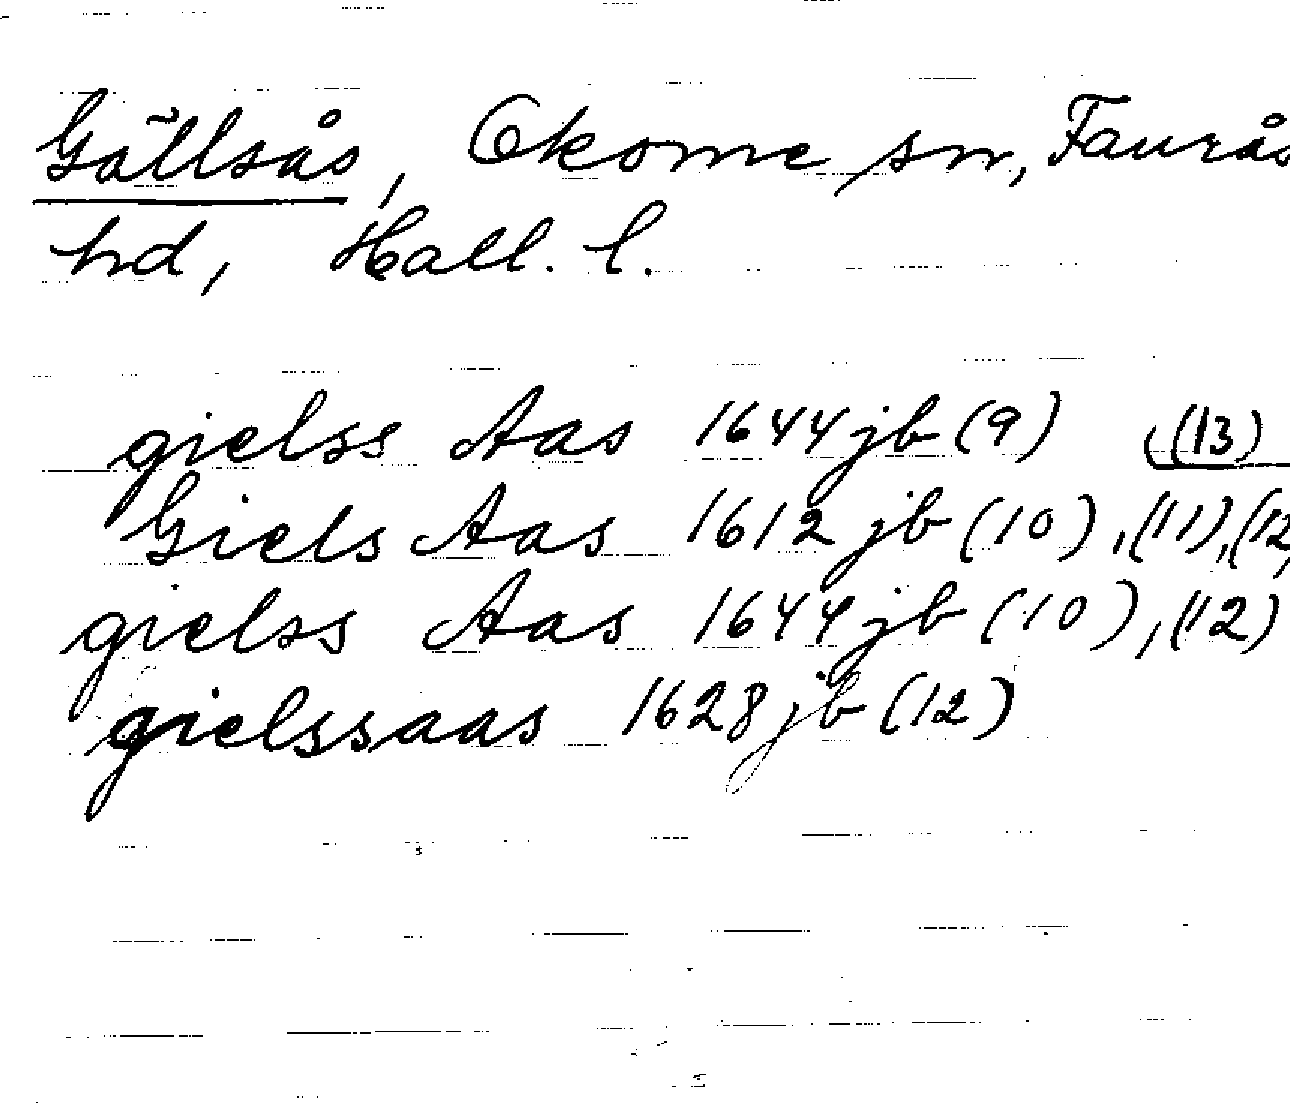 Gällsås, Okome sn, Faurås
hd, Hall. l.
gielss Aas 1644 jb (9) , (13)
Giels Aas 1612 jb (10), (11), (12,
gielss Aas 1644 jb (10), (12)
gielssaas 1628 jb (12)